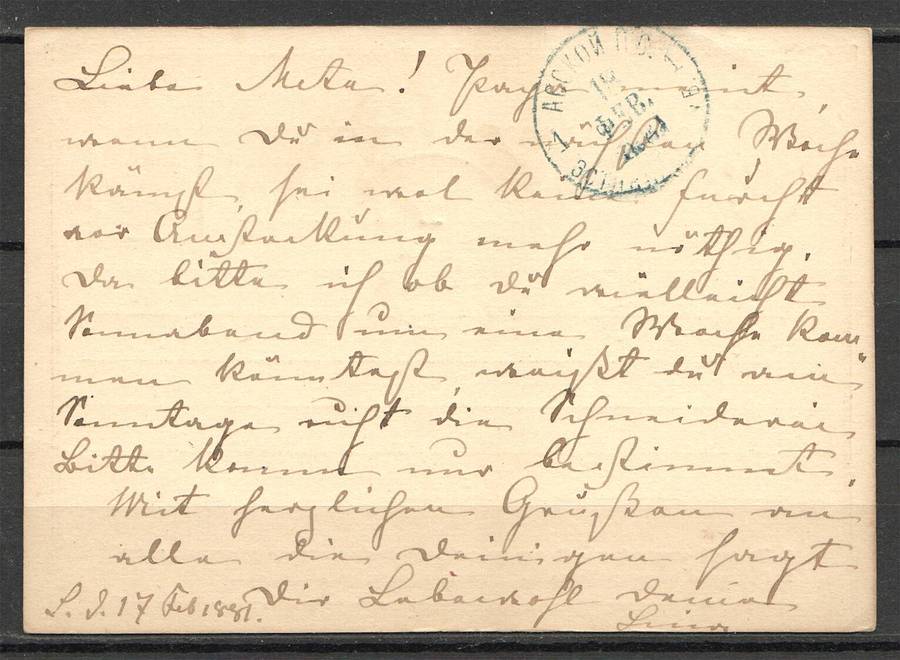 Liebe Meta! Papa meint,
wenn Du in der nächsten Woche
kämst, sei wol keine Furcht
vor Ansteckung mehr nöthig.
Da bitte ich ob Du vielleicht
Sonnabend um eine Woche kom-
men könntest, weißt du am
Sonntage nicht die Schneiderei
Bitte komm nur bestimmt.
Mit herzlichen Grüßen an
alle die Deinigen sagt
Dir Lebewohl Deine
Lina
d. 17 Feb 1881.
ФЕВ.
1881